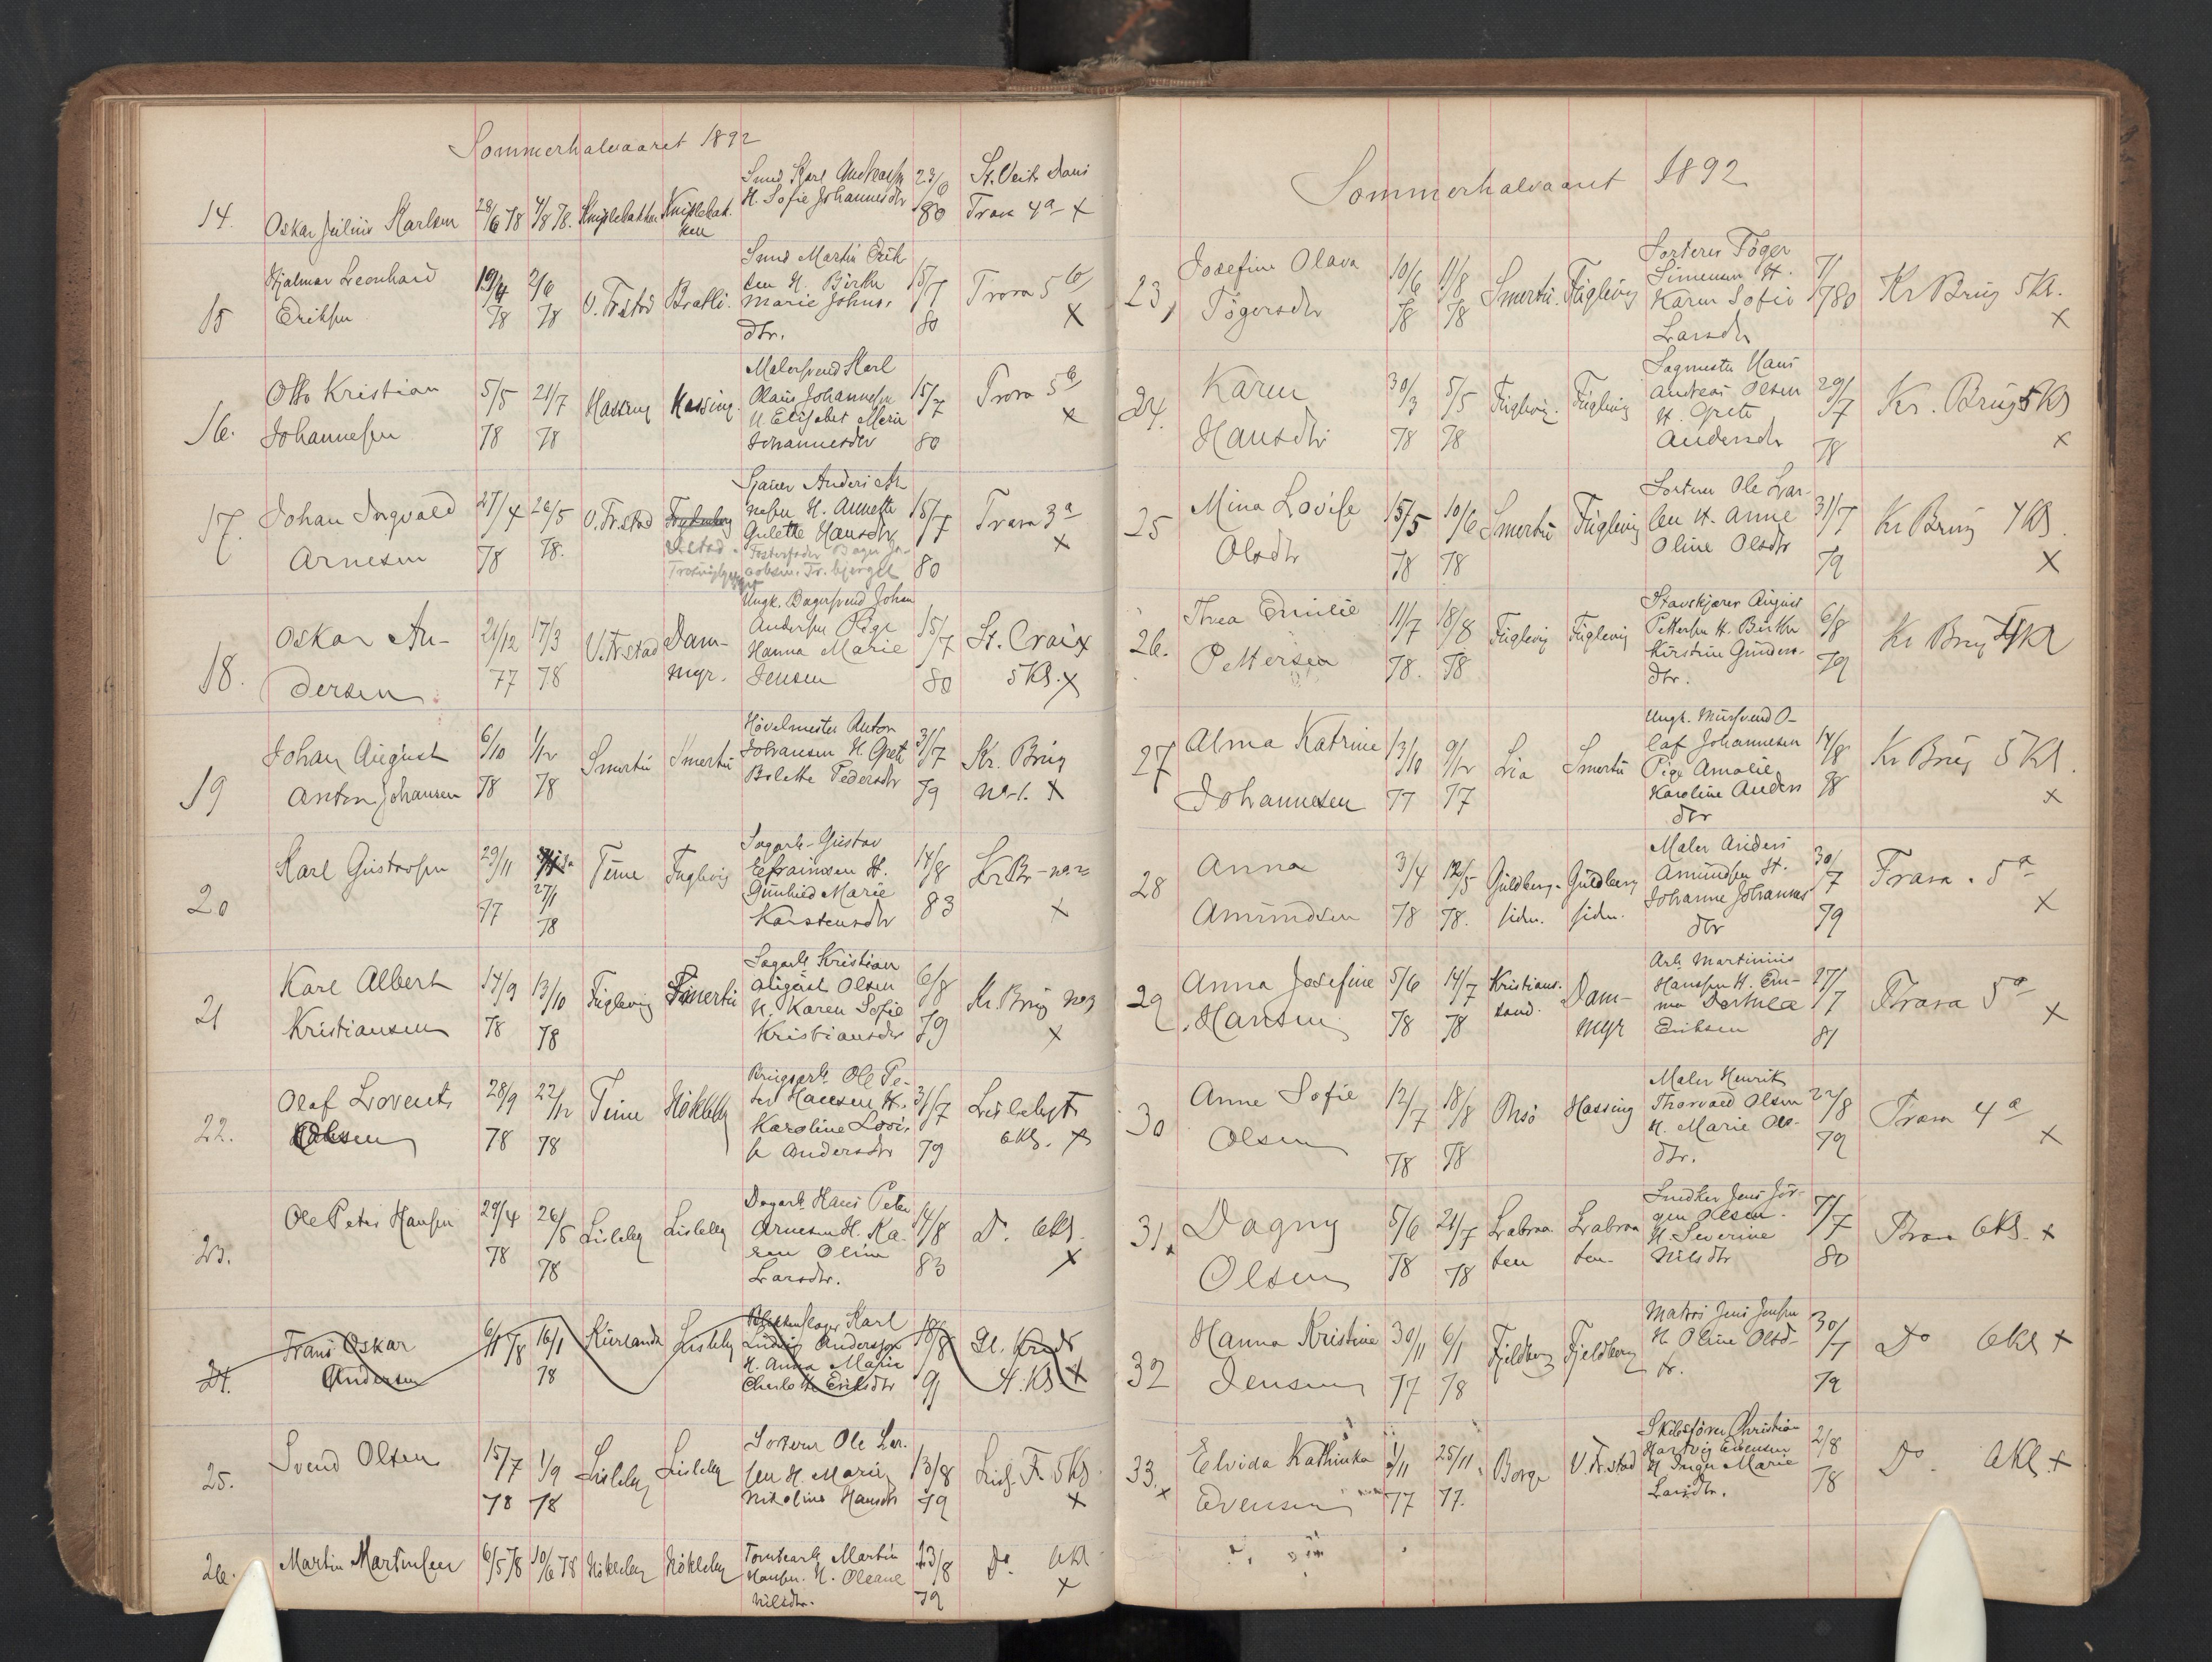 Sommerhalvaaret 1892
14. Oskar Julius Karlsen 28/6 78 4/8 78. Kniplebakken Kniplebakken Smed Karl Andreassen H. Sofie Johannesdtr 23/6 80 St. Veits Dans Trara 4a x
15 Hjalmar Leonhard Eriksen 19/4 78 2/6 78 V. Fr.stad Bratli. Smed Martin Eriksen H. Birthe Marie Johnsdtr. 15/7 80 Trara 5b x
16. Otto Kristian Johannesen 5/5 78 21/7 78 Hassing Hassing. Malersvend Karl Olaus Johannesen H. Elisabet Marie Johannesdtr 15/7 80 Trara 5b x
17. Johan Ingvald Arnesen 27/4 78 26/5 78. V. Fr.stad V.stad. Anders Arnesen H. Annette Gulette Hansdtr Fosterfader Bager Jacobsen. Fr. bjerget 15/7 80 Trara 3a x
18. Oskar Andersen 21/12 77 17/3 78 V. Fr.stad Dammyr. Ungk. Bagersvend Johan Andersen Pige Hanna Marie Jensen 15/7 80 St. Croix 5 Kl. x
19 Johan August Anton Johansen 6/10 78 1/12 78 Smertu Smertu Høvelmester Anton Johansen H. Grete Bolette Pedersdtr 31/7 79 Kr. Brug No 1. x
20 Karl Gustavsen 29/11 77 27/1 78 Tune Fuglevig Sagarb. Gustav Efraimsen H. Gunhild Marie Karstensdtr 14/8 83 Kr Br - No 2 x
21 Karl Albert Kristiansen 14/9 78 13/10 78 Fuglevig Smertu Sagarb Kristian August Olsen H. Karen Sofie Kristiansdtr 6/8 79 Kr. Brug No 3 x
22. Olaf Lorents Olsen 28/9 78 22/12 78 Tune Nökleby Brugsarb. Ole Peter Hansen H. Karoline Lovise Andersdtr 31/7 79 Lisleby Fr 6 Kl. x
23. Ole Peter Hansen 29/4 78 26/5 78 Lisleby Lisleby Dagarb. Hans Peter Arnesen H. Karen Oline Larsdtr. 14/8 83 Do 6 Kl. x
24. Frans Oskar Andersen 6/1 78 16/1 78 Kurland Lisleby Karl Ludvig Andersson H. Anna Marie Charlotte Eriksdtr 18/8 91 Gl. Fredr 4. Kl x
25. Svend Olsen 15/7 78 1/9 78 Lisleby Lisleby Sorterer Ole Larsen H. Marie Nikoline Hansdtr 13/8 79 Lisl. Fr. 5 Kl. x
26. Martin Martinsen 6/5 78 10/6 78 Nökleby Nökleby Tomtearb. Martin Hansen. H. Oleane Nilsdtr. 23/8 79 Do. 6 Kl x
Sommerhalvaaret 1892
23, Josefine Olava Tögersdtr 10/6 78 11/8 78 Smertu. Fuglevig Sorterer Töger Simensen H. Karen Sofie Larsdtr 7/7 80 Kr Brug 5 Kl. x
24. Karen Hansdtr 30/3 78 5/5 78 Fuglevig. Fuglevig Sagmester Hans Andreas Olsen H. Grete Andersdtr 29/7 78 Kr. Brug 5 Kl x
25 Mina Lovise Olsdtr 15/5 78 10/6 78 Smertu Fuglevig Sorterer Ole Larsen H. Anne Oline Olsdtr 31/7 79 Kr Brug 4 Kl. x
26. Thea Emilie Pettersen 11/7 78. 18/8 78. Fuglevig Fuglevig Stavskjærer August Pettersen H. Birthe Kirstine Gundersdtr. 6/8 79 Kr Brug 4 Kl
27 Alma Katrine Johannesen 13/10 77 9/12 77 Lia Smertu Ungk. Mursvend Olaf Johannesen Pige Amalie Karoline Andersdtr 14/8 78 Kr Brug 5 Kl. x
28 Anna Amundsen 3/4 78 12/5 78. Guldbergsiden. Guldbergsiden. Maler Anders Amundsen H. Johanne Johannesdtr 30/7 79 Trara. 5a x
29 Anna Josefine Hansen 5/6 78 14/7 78 Kristiansand. Dammyr Arb. Martinius Hanssen H. Emma Dorthea Eriksen 27/7 81 Trara 5a x
30 Anne Sofie Olsen 12/7 78 18/8 78 Onsö Hassing Maler Henrik Thorvald Olsen H. Marie Olsdtr. 22/8 79 Trara 4a x
31. Dagny Olsen 5/6 78 21/7 78 Labraaten Labraaten. Snedker Jens Jörgen Olsen. H. Severine Nilsdtr 7/7 80 Trara 6 Kl. x
32 Hanna Kristine Jensen 30/11 77 6/1 78 Fjeldberg Fjeldberg Matros Jens Jensen H Oline Olsdtr. 30/7 79 Do 6 Kl x
33. x Elvida Kathinka Evensen 1/11 77 25/11 77. Borge V. Fr.stad Skibsförer Christian Hartvig Evensen H Inger Marie Larsdtr. 2/8 78 Do. 6 Kl. x